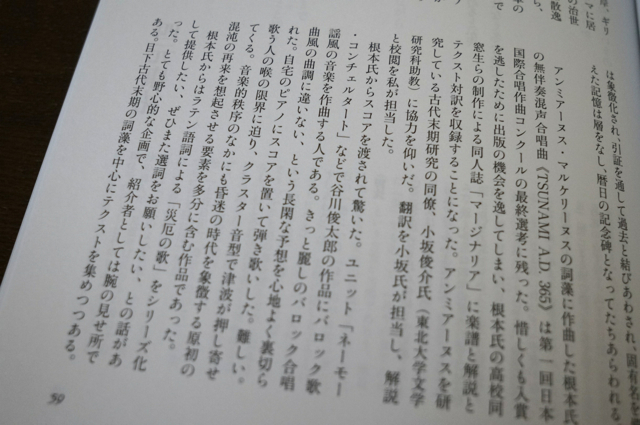 は象徴化され、引証を通して過去と結びあわされ、固有名を
えた記憶は層をなし、暦日の記念碑となってたちあらわれる
アンミアーヌス・マルケリーヌスの詞藻に作曲した根本氏
の無伴奏混声合唱曲《TSUNAMI A.D. 365》は第一回日本
国際合唱作曲コンクールの最終選考に残った。惜しくも入賞
を逃したために出版の機会を逸してしまい、根本氏の高校同
窓生らの制作による同人誌「マージナリア」に楽譜と解説と
テクスト対訳を収録することになった。アンミアーヌスを研
究している古代末期研究の同僚、小坂俊介氏（東北大学文学
研究科助教）に協力を仰いだ。翻訳を小坂氏が担当し、解説
と校閲を私が担当した。
根本氏からスコアを渡されて驚いた。ユニット「ネーモー
・コンチェルタート」などで谷川俊太郎の作品にバロック歌
謡風の音楽を作曲する人である。きっと麗しのバロック合唱
曲風の曲調に違いない、という長閑な予想を心地よく裏切ら
れた。自宅のピアノにスコアを置いて弾き歌いした。難しい。
歌う人の喉の限界に迫り、クラスター音型で津波が押し寄せ
てくる。音楽的秩序のなかにも昏迷の時代を象徴する原初の
混沌の再来を想起させる要素を多分に含む作品であった。
根本氏からはラテン語詞による「災厄の歌」をシリーズ化
して提供したい、ぜひまた選詞をお願いしたい、との話があ
った。とても野心的な企画で、紹介者としては腕の見せ所で
ある。目下古代末期の詞藻を中心にテクストを集めつつある。
59